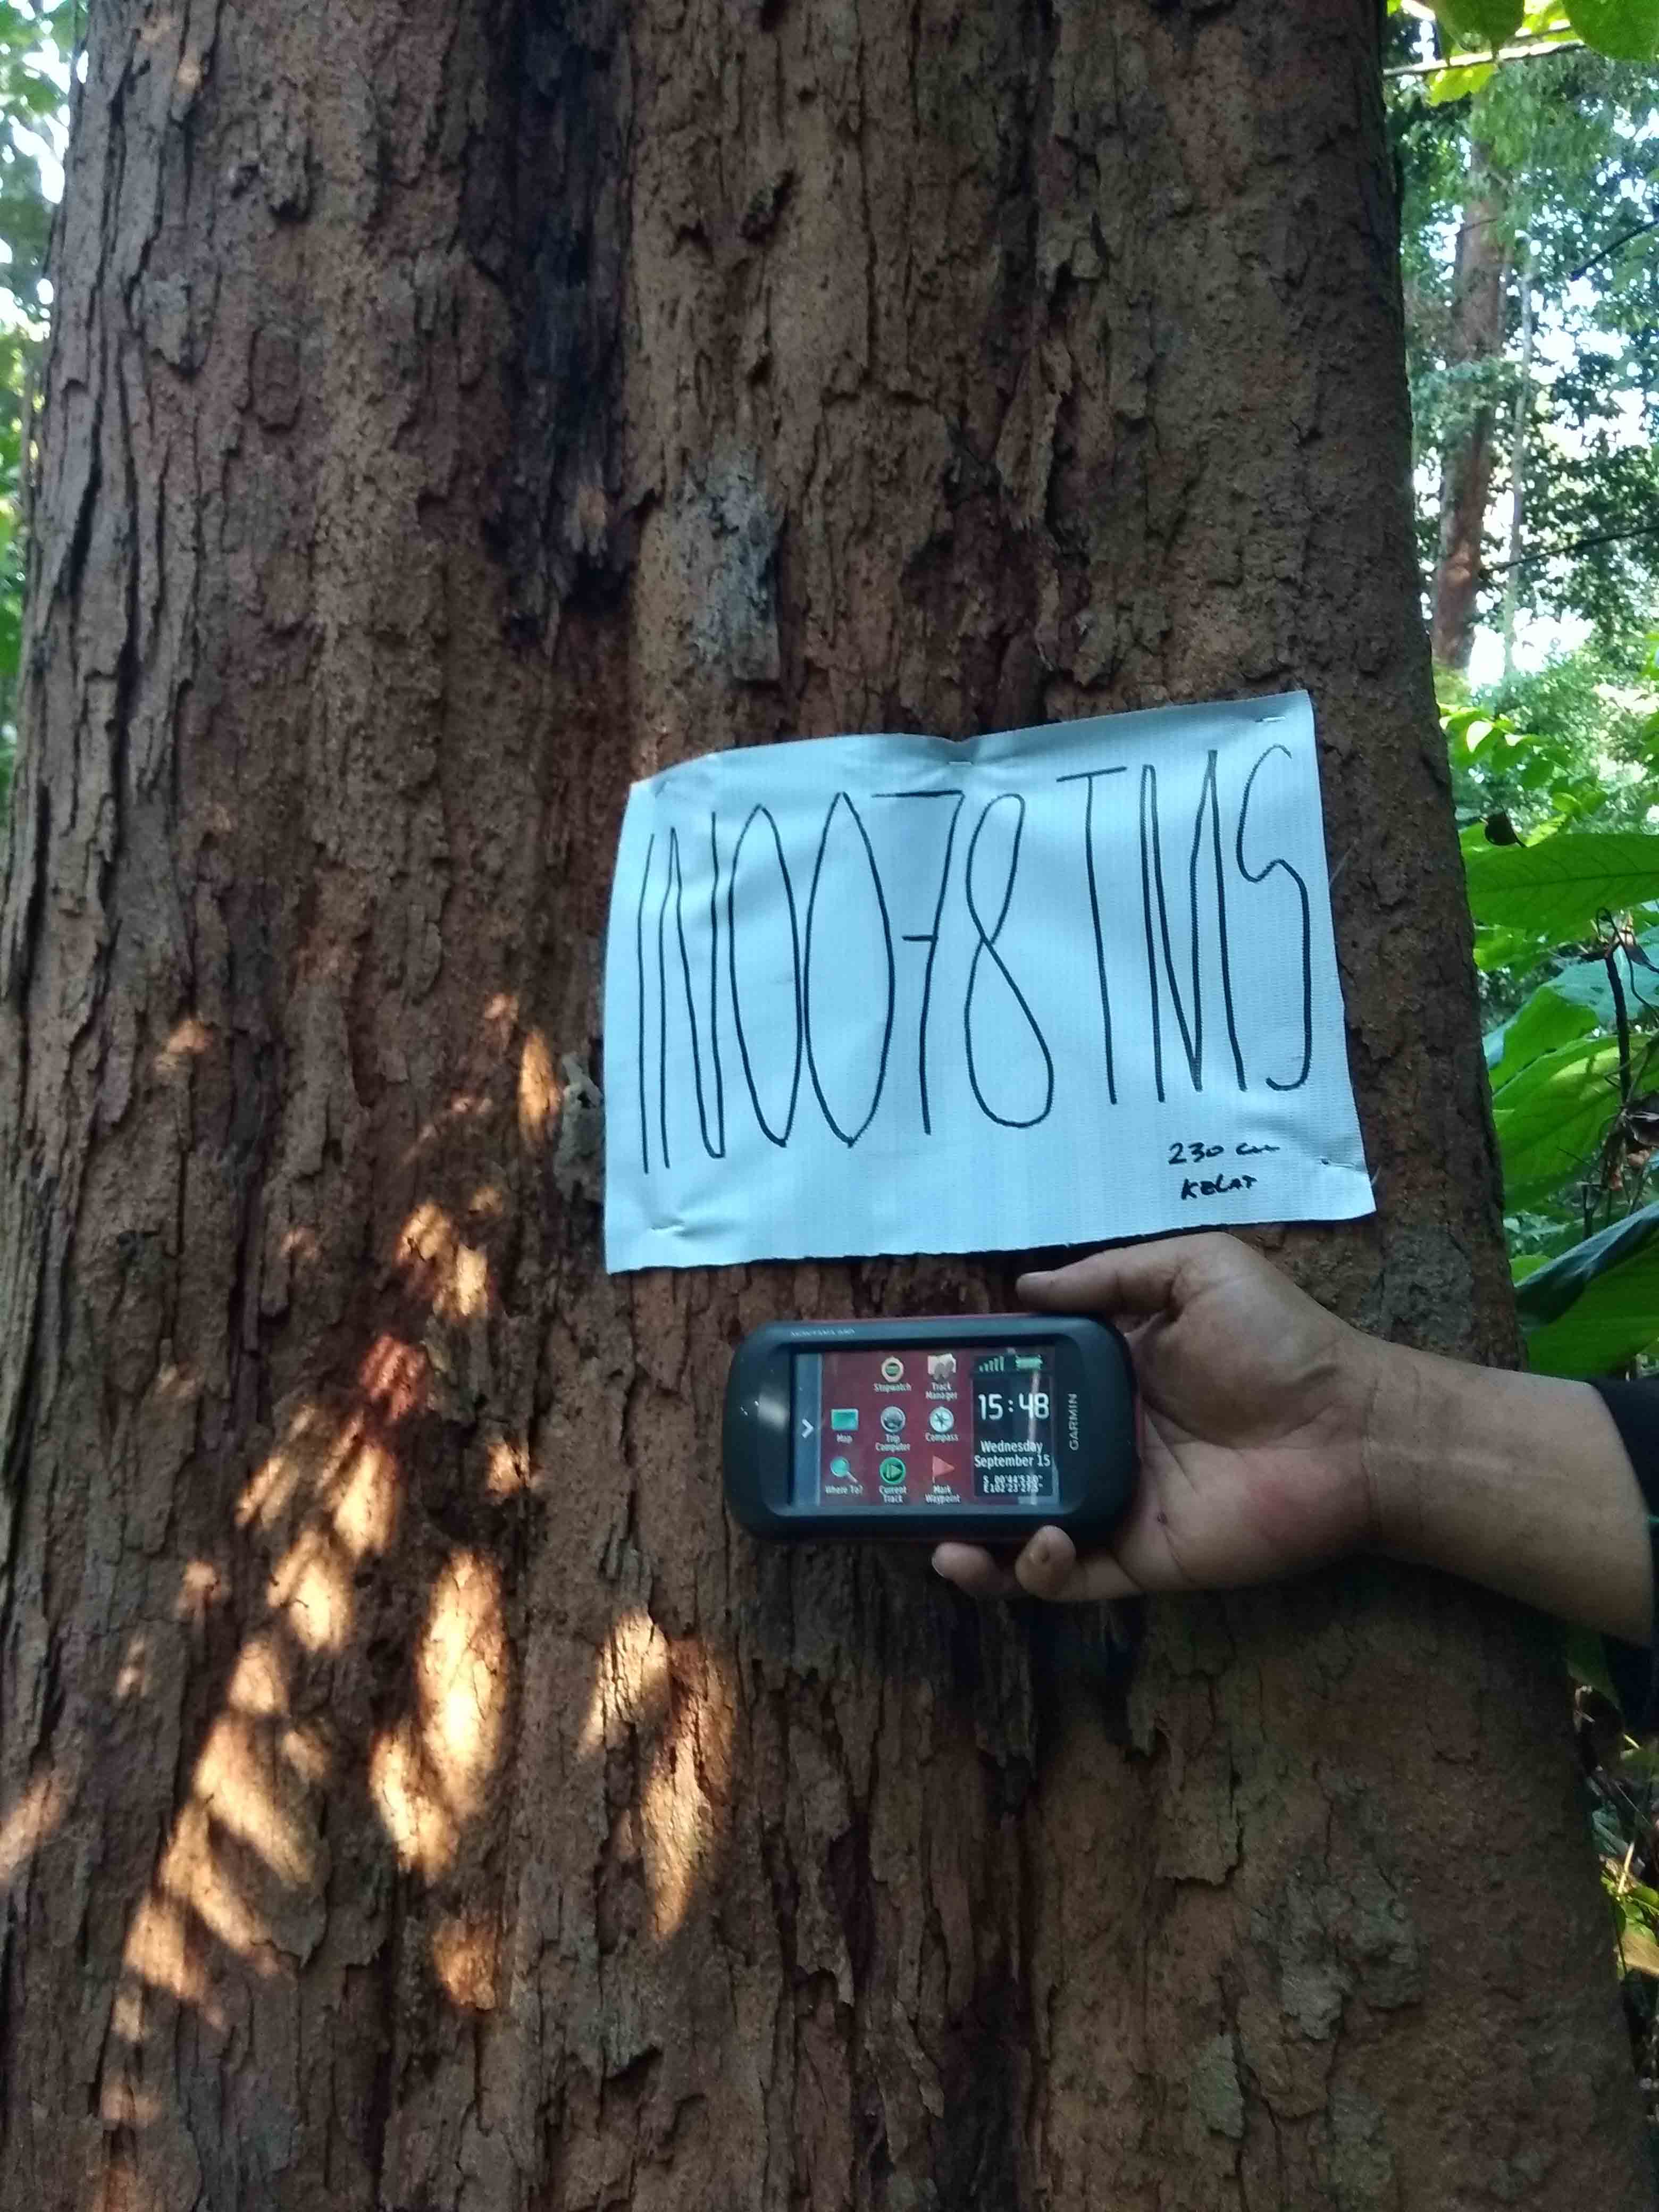 IN0078 TMS
230 cm
KELAT
Stopwatch
Track Manager
Map
Trip Computer
Compass
Where To?
Current Track
Mark Waypoint
15:48
Wednesday
September 15
GARMIN